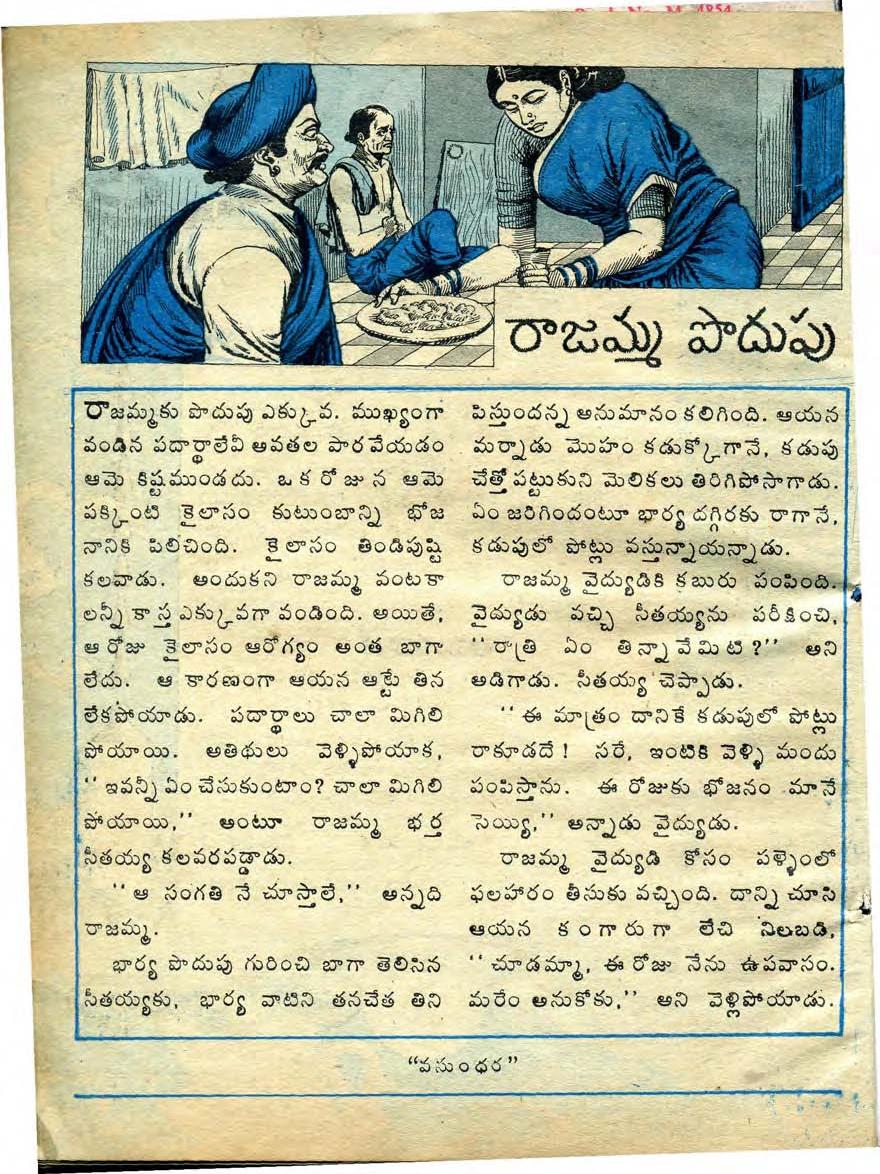 రాజమ్మ పొదుపు
రాజమ్మకు పొదుపు ఎక్కువ. ముఖ్యంగా
వండిన పదార్థాలేవీ అవతల పారవేయడం
ఆమె కిష్టముండదు. ఒక రోజున ఆమె
పక్కింటి కైలాసం కుటుంబాన్ని భోజ
నానికి పిలిచింది. కైలాసం తిండిపుష్టి
కలవాడు. అందుకని రాజమ్మ వంటకా
లన్నీ కాస్త ఎక్కువగా వండింది. అయితే,
ఆ రోజు కైలాసం ఆరోగ్యం అంత బాగా
లేదు. ఆ కారణంగా ఆయన ఆట్టే తిన
లేకపోయాడు. పదార్థాలు చాలా మిగిలి
పోయాయి. అతిథులు వెళ్ళిపోయాక,
"ఇవన్నీ ఏం చేసుకుంటాం? చాలా మిగిలి
పోయాయి," అంటూ రాజమ్మ భర్త
సీతయ్య కలవరపడ్డాడు.
"ఆ సంగతి నే చూస్తాలే," అన్నది
రాజమ్మ.
భార్య పొదుపు గురించి బాగా తెలిసిన
సీతయ్యకు, భార్య వాటిని తనచేత తిని
పిస్తుందన్న అనుమానం కలిగింది. ఆయన
మర్నాడు మొహం కడుక్కోగానే, కడుపు
చేత్తో పట్టుకుని మెలికలు తిరిగిపోసాగాడు.
ఏం జరిగిందంటూ భార్య దగ్గిరకు రాగానే,
కడుపులో పోట్లు వస్తున్నాయన్నాడు.
రాజమ్మ వైద్యుడికి కబురు పంపింది.
వైద్యుడు వచ్చి సీతయ్యను పరీక్షించి,
"రాత్రి ఏం తిన్నావేమిటి?" అని
అడిగాడు. సీతయ్య చెప్పాడు.
"ఈ మాత్రం దానికే కడుపులో పోట్లు
రాకూడదే! సరే, ఇంటికి వెళ్ళి మందు
పంపిస్తాను. ఈ రోజుకు భోజనం మానే
సెయ్యి," అన్నాడు వైద్యుడు.
రాజమ్మ వైద్యుడి కోసం పళ్ళెంలో
ఫలహారం తీసుకు వచ్చింది. దాన్ని చూసి
ఆయన కంగారుగా లేచి నిలబడి,
"చూడమ్మా, ఈ రోజు నేను ఉపవాసం.
మరేం అనుకోకు," అని వెళ్లిపోయాడు.
"వసుంధర"